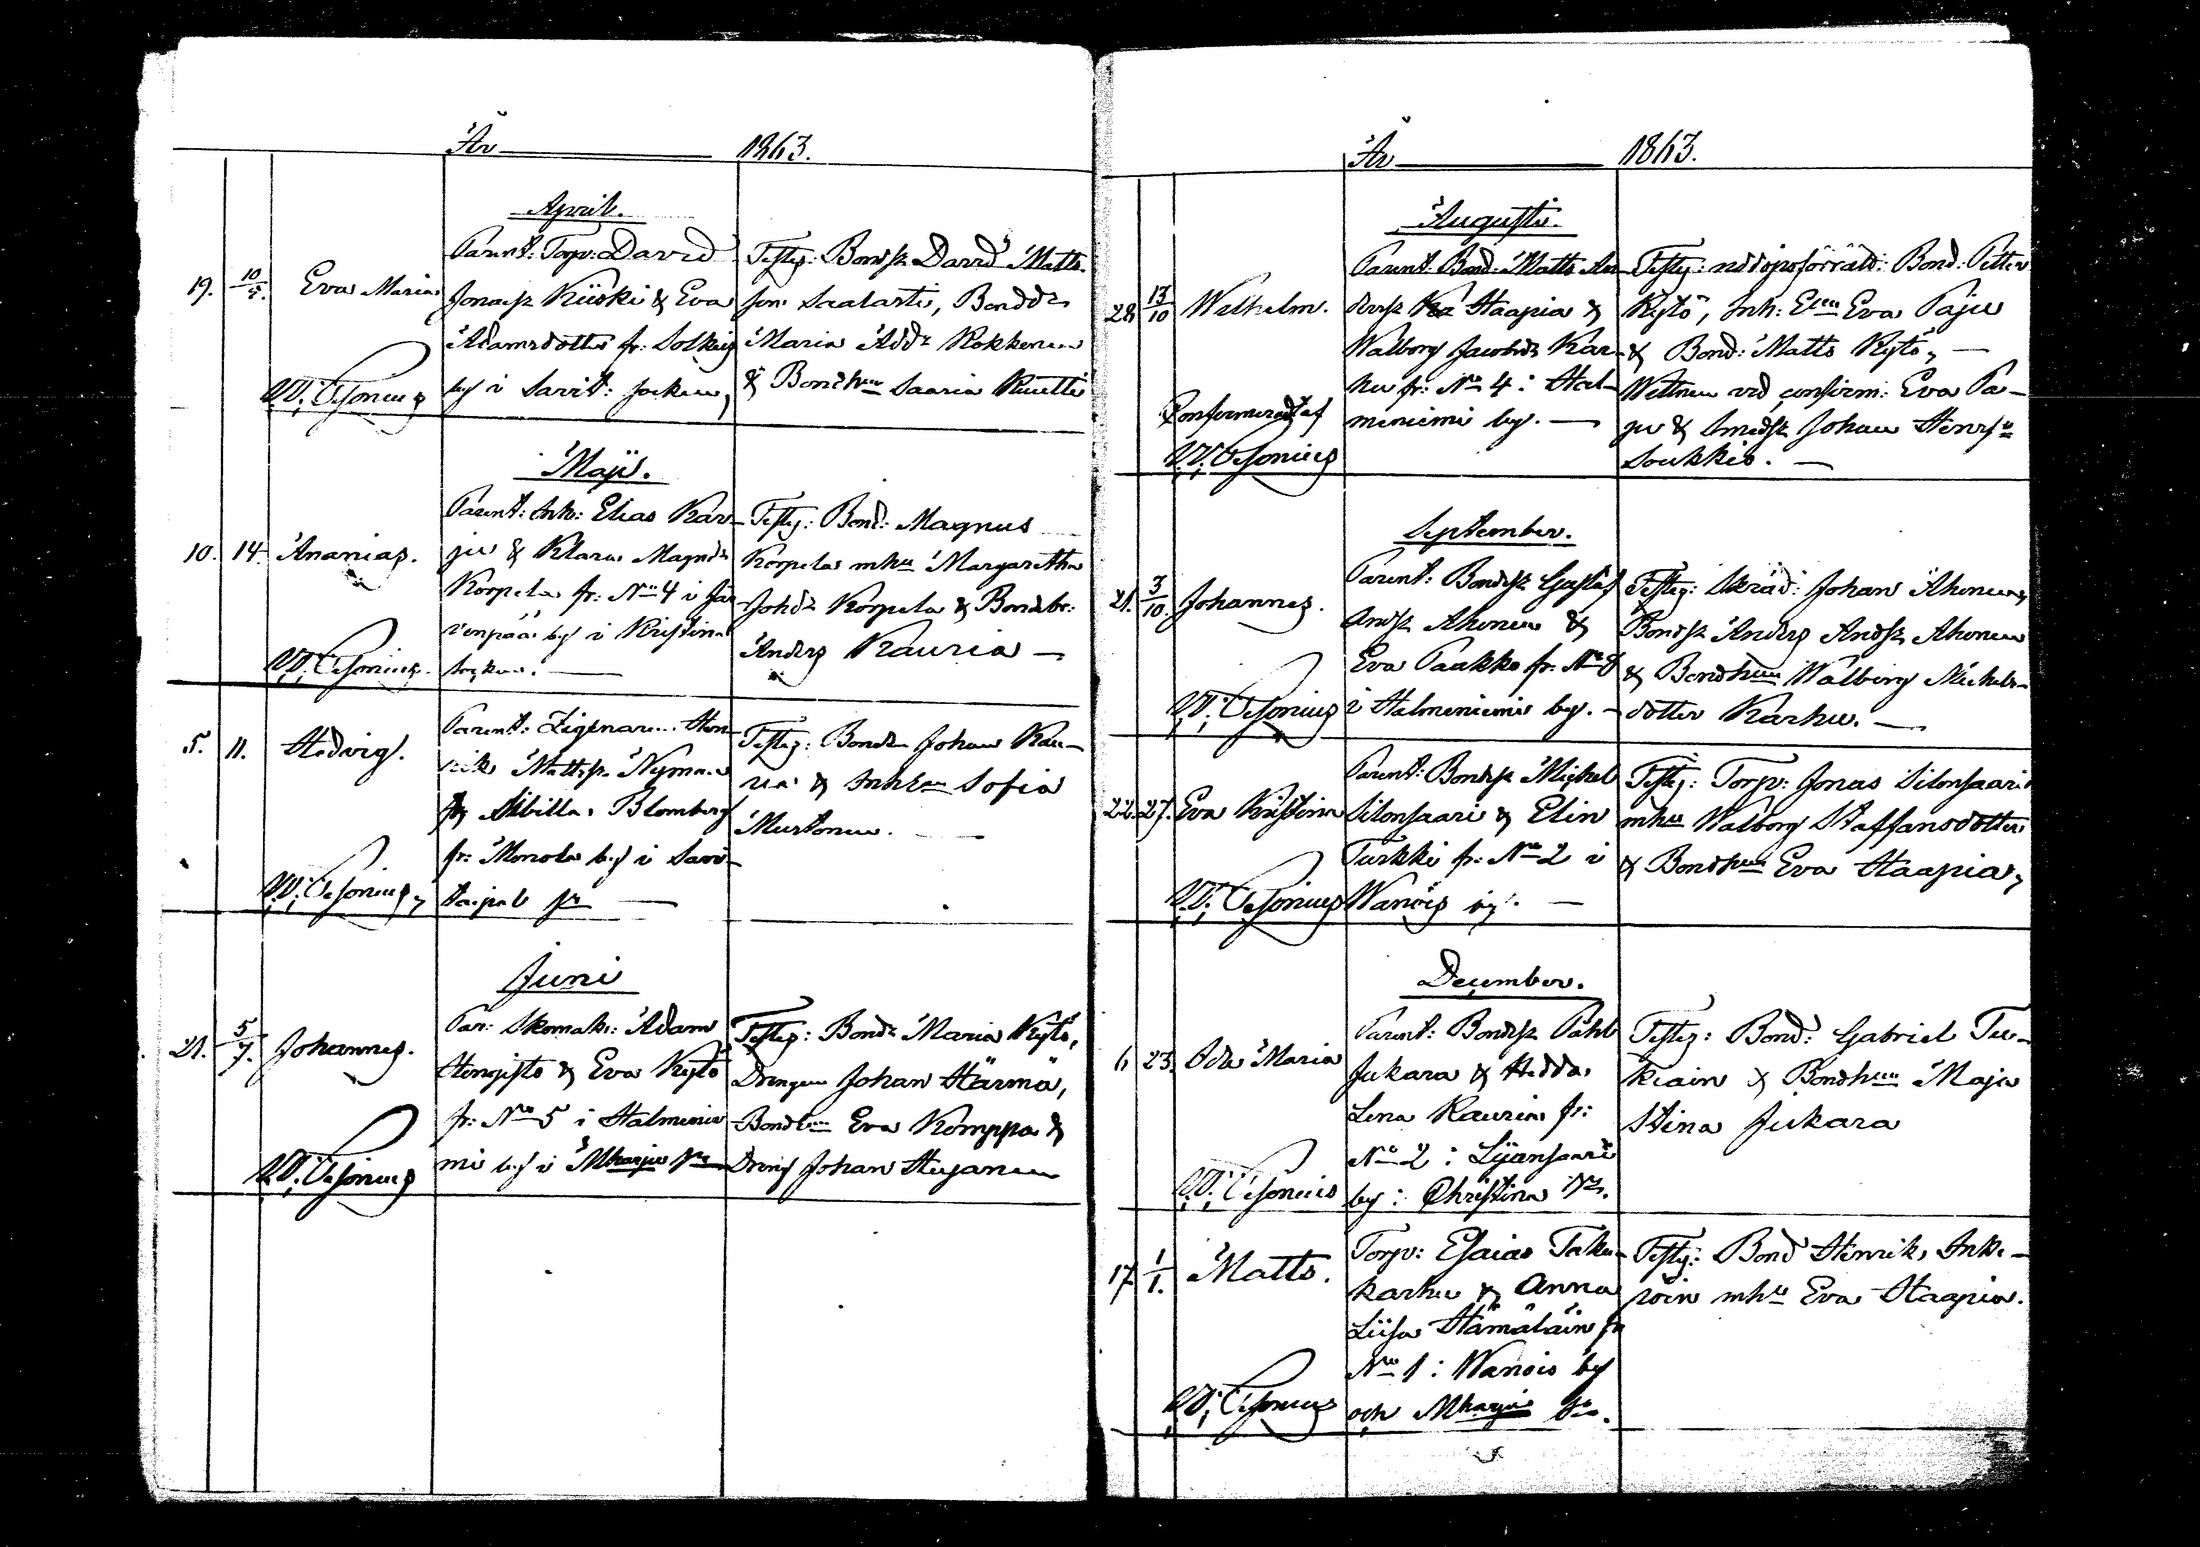 År 1863.
April.
19. 10/5. Eva Maria
Parent: Torp: David
Jonasz Kiiski & Eva
Adamsdotter fr: Solkei
by i Savit: socken,
Testes: Bondsz David Matts-
son Saalasti, Bondd:
Maria Add: Kokkonen
& Bondhun Saaria Kuutti
Maji.
10. 14. Ananias.
Parent: Inh: Elias Kar-
ju & Klara Magnd:
Korpela fr: No 4 i Jär
venpää by i Kristina
socken.
Testes: Bond: Magnus
Korpela mhu Margaretha
Johd: Korpela & Bondebr:
Anders Kauria
5. 11. Hedvig.
Parent: Zigenaren Hen
rik Mattsz Nyman
& Sibilla Blomberg
fr: Monola by i Savi-
taipale sn
Testes: Bonden Johan Kau-
ria & Inhean Sofia
Murtonen.
Juni
21. 5/7. Johannes.
Par: Skomak: Adam
& Eva Kytö
fr: No 5 i Halmenie
mi by i Mharju sn
Testes: Bondd Maria Kytö,
Drengen Johan Härmä,
Eva Komppa &
Dreng Johan
År 1863.
Augusti.
28. 13/10 Wilhelm.
Konfirmeradt af
Parent: Bond: Matts An
dersz Haapia &
Walborg Jacobsd: Kar-
hu fr: No 4 i Hal-
meniemi by.
Testes: nöddopsförrätt: Bond: Petter
Kytö, Inh: Eva Paju
& Bond: Matts Kytö,
Wittnen vid confirm: Eva Pa-
ju & Smedsz Johan Henrsn
Soukkio.
September.
21. 3/10. Johannes.
Parent: Bondsz Gustaf
Andsz Ahonen &
Eva Paakko fr: No 8
i Halmeniemi by.
Testes: Johan Ahonen,
Bondsz Anders Andsz Ahonen
& Bondhun Walborg Michels-
dotter Karhu.
22. 27. Eva Kristina
Parent: Bondsz Michel
Silonsaari & Elin
Turkki fr: No 2 i
Wanois by.
Testes: Torp: Jonas Silonsaari
mhu Walborg Staffansdotter
& Bondhun Eva Haapia,
December.
6. 23. Oda Maria
Parent: Bondsz Påhl
Jukara & Hedda
Lena Kauria fr:
No 2 i Lijansaari
by i Christina sn.
Testes: Bond: Gabriel Tu-
kiain & Bondhun Maja
Stina Jukara
17. 1/1. Matts.
Torp: Esaias Taka-
karhu & Anna
Liisa Hämäläin fr
No 1 i Wanois by
och Mharju sn.
Testes: Bond Henrik Inke-
röin mhu Eva Haapia.